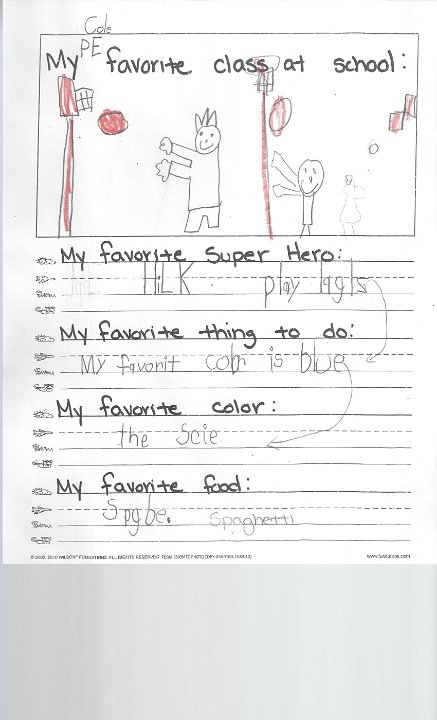 Cole
PE
My favorite class at school:
My favorite Super Hero:
HiLK play
My favorite thing to do:
My favorit colr is blue
My favorite color:
the Scie
My favorite food:
Spgbe. Spaghetti
WILSON FUNDATIONS. ALL RIGHTS RESERVED. www.fundations.com